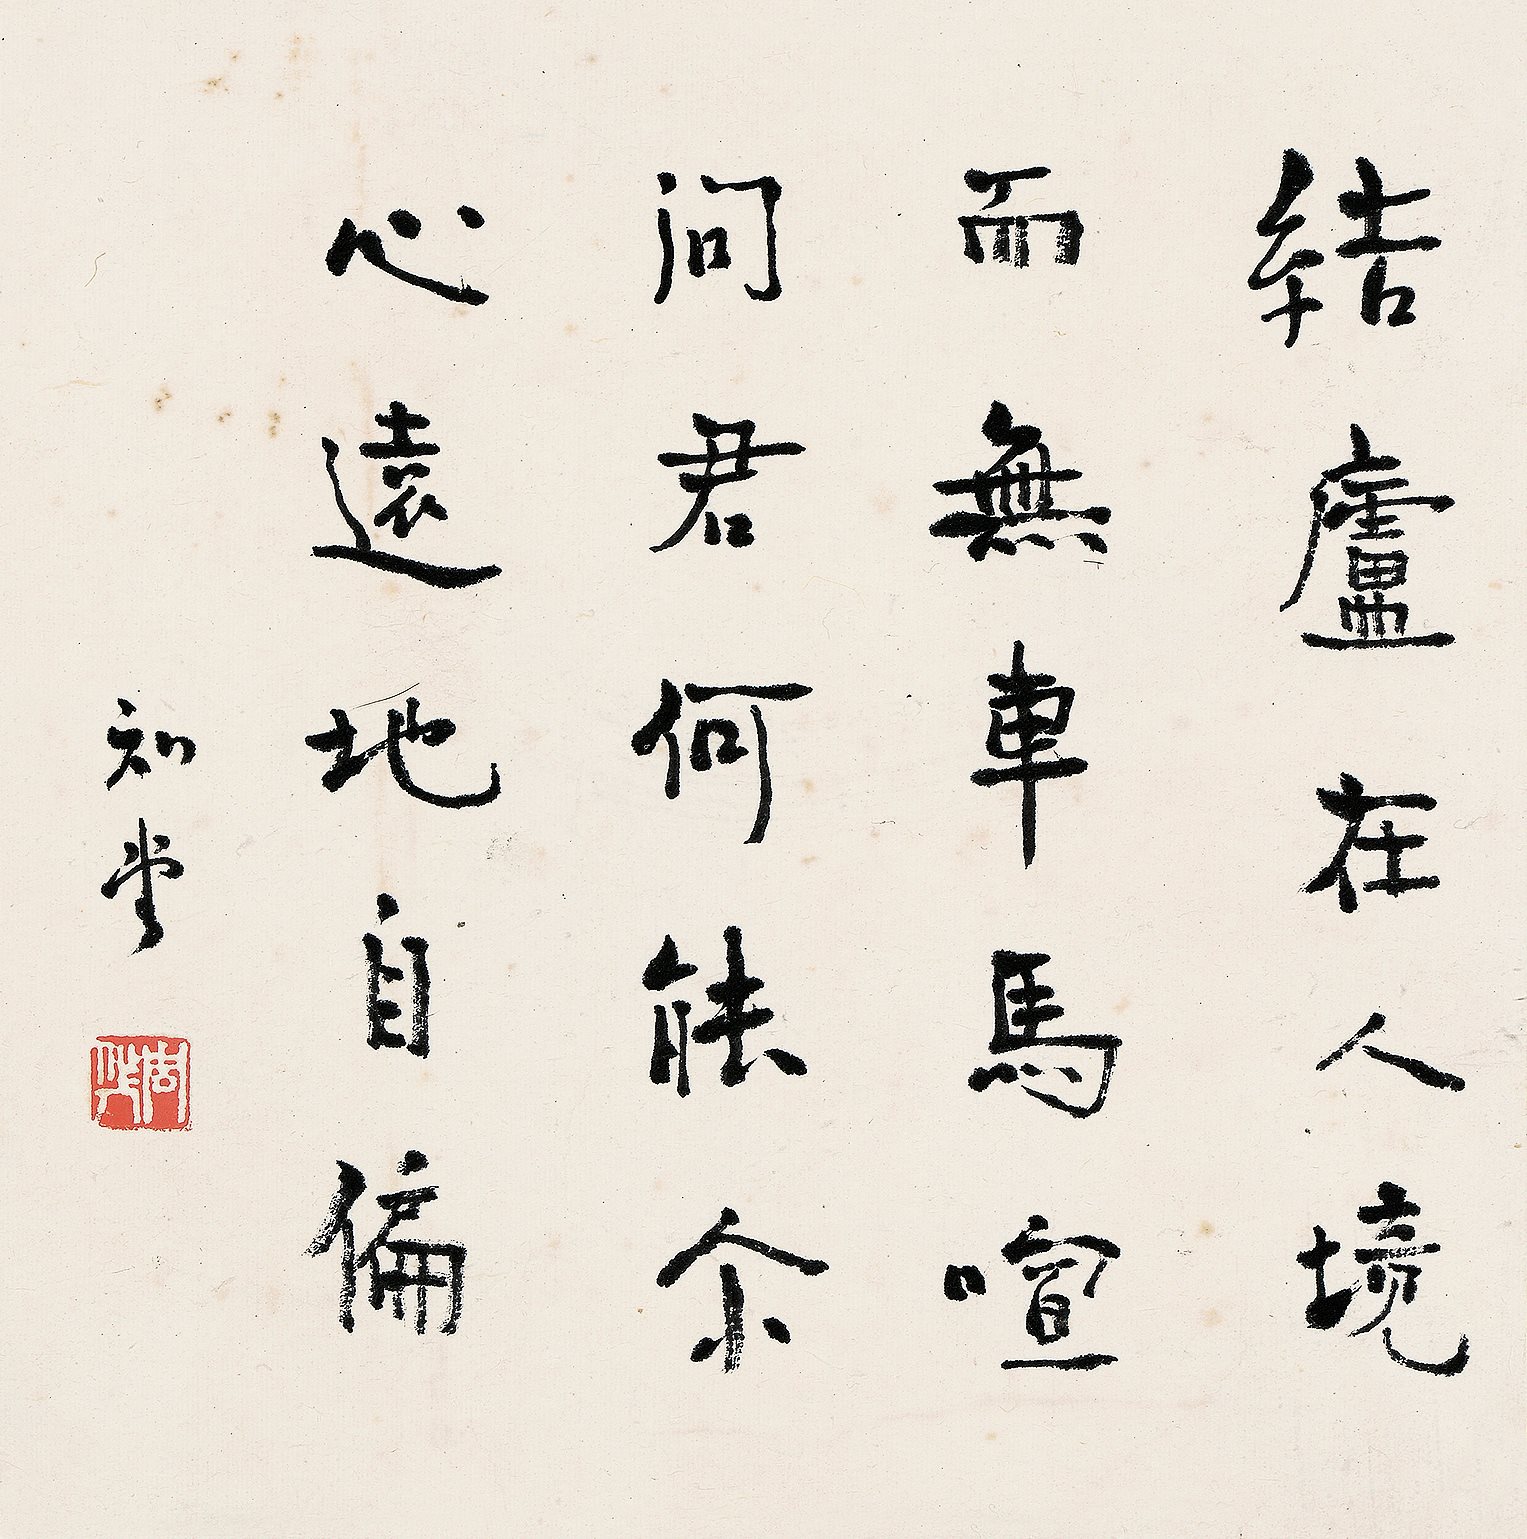 結廬在人境
而無車馬喧
问君何能尒
心遠地自偏
知堂